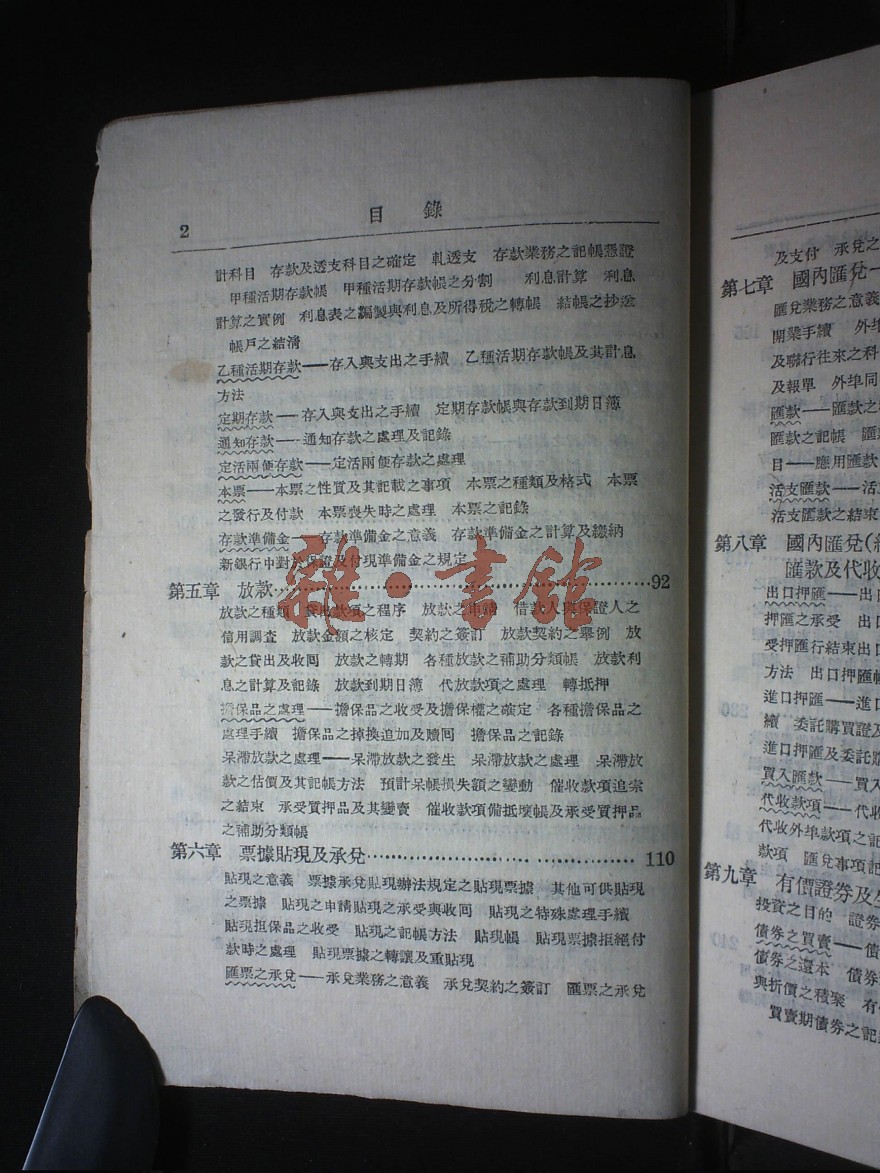 2
目錄
計科目 存款及透支科目之確定 軋透支 存款業務之記帳憑證
甲種活期存款帳 甲種活期存款帳之分割 利息計算 利息
計算之實例 利息表之編製與利息及所得稅之轉帳 結帳之抄送
帳戶之結清
乙種活期存款——存入與支出之手續 乙種活期存款帳及其計息
方法
定期存款——存入與支出之手續 定期存款帳與存款到期日簿
通知存款——通知存款之處理及記錄
定活兩便存款——定活兩便存款之處理
本票——本票之性質及其記載之事項 本票之種類及格式 本票
之發行及付款 本票喪失時之處理 本票之記錄
存款準備金——存款準備金之意義 存款準備金之計算及繳納
新銀行中對於保證及付現準備金之規定
第五章 放款……92
放款之種類 貸出款項之程序 放款之申請 借款人與保證人之
信用調查 放款金額之核定 契約之簽訂 放款契約之舉例 放
款之貸出及收回 放款之轉期 各種放款之補助分類帳 放款利
息之計算及記錄 放款到期日簿 代放款項之處理 轉抵押
擔保品之處理——擔保品之收受及擔保權之確定 各種擔保品之
處理手續 擔保品之掉換追加及贖回 擔保品之記錄
呆滯放款之處理——呆滯放款之發生 呆滯放款之處理 呆滯放
款之估價及其記帳方法 預計呆帳損失額之變動 催收款項追索
之結束 承受質押品及其變賣 催收款項備抵壞帳及承受質押品
之補助分類帳
第六章 票據貼現及承兌……110
貼現之意義 票據承兌貼現辦法規定之貼現票據 其他可供貼現
之票據 貼現之申請貼現之承受與收回 貼現之特殊處理手續
貼現担保品之收受 貼現之記帳方法 貼現帳 貼現票據拒絕付
款時之處理 貼現票據之轉讓及重貼現
匯票之承兌——承兌業務之意義 承兌契約之簽訂 匯票之承兌
雜·書館
及支付 承兌之
第七章 國內匯兌一
匯兌業務之意義
開業手續 外埠
及聯行往來之科
及報單 外埠同
匯款——匯款之
匯款之記帳 匯
目——應用匯款
活支匯款——活
活支匯款之結束
第八章 國內匯兌(
匯款及代收
出口押匯——出
押匯之承受 出
受押匯行結束出口
方法 出口押匯
進口押匯——進
續 委託購買證及
進口押匯及委託購
買入匯款——買入
代收款項——代收
代收外埠款項之記
款項 匯兌事項記
第九章 有價證券及
投資之目的 證券
債券之買賣——債
債券之還本 債券
與折價之積聚 有
買賣期債券之記